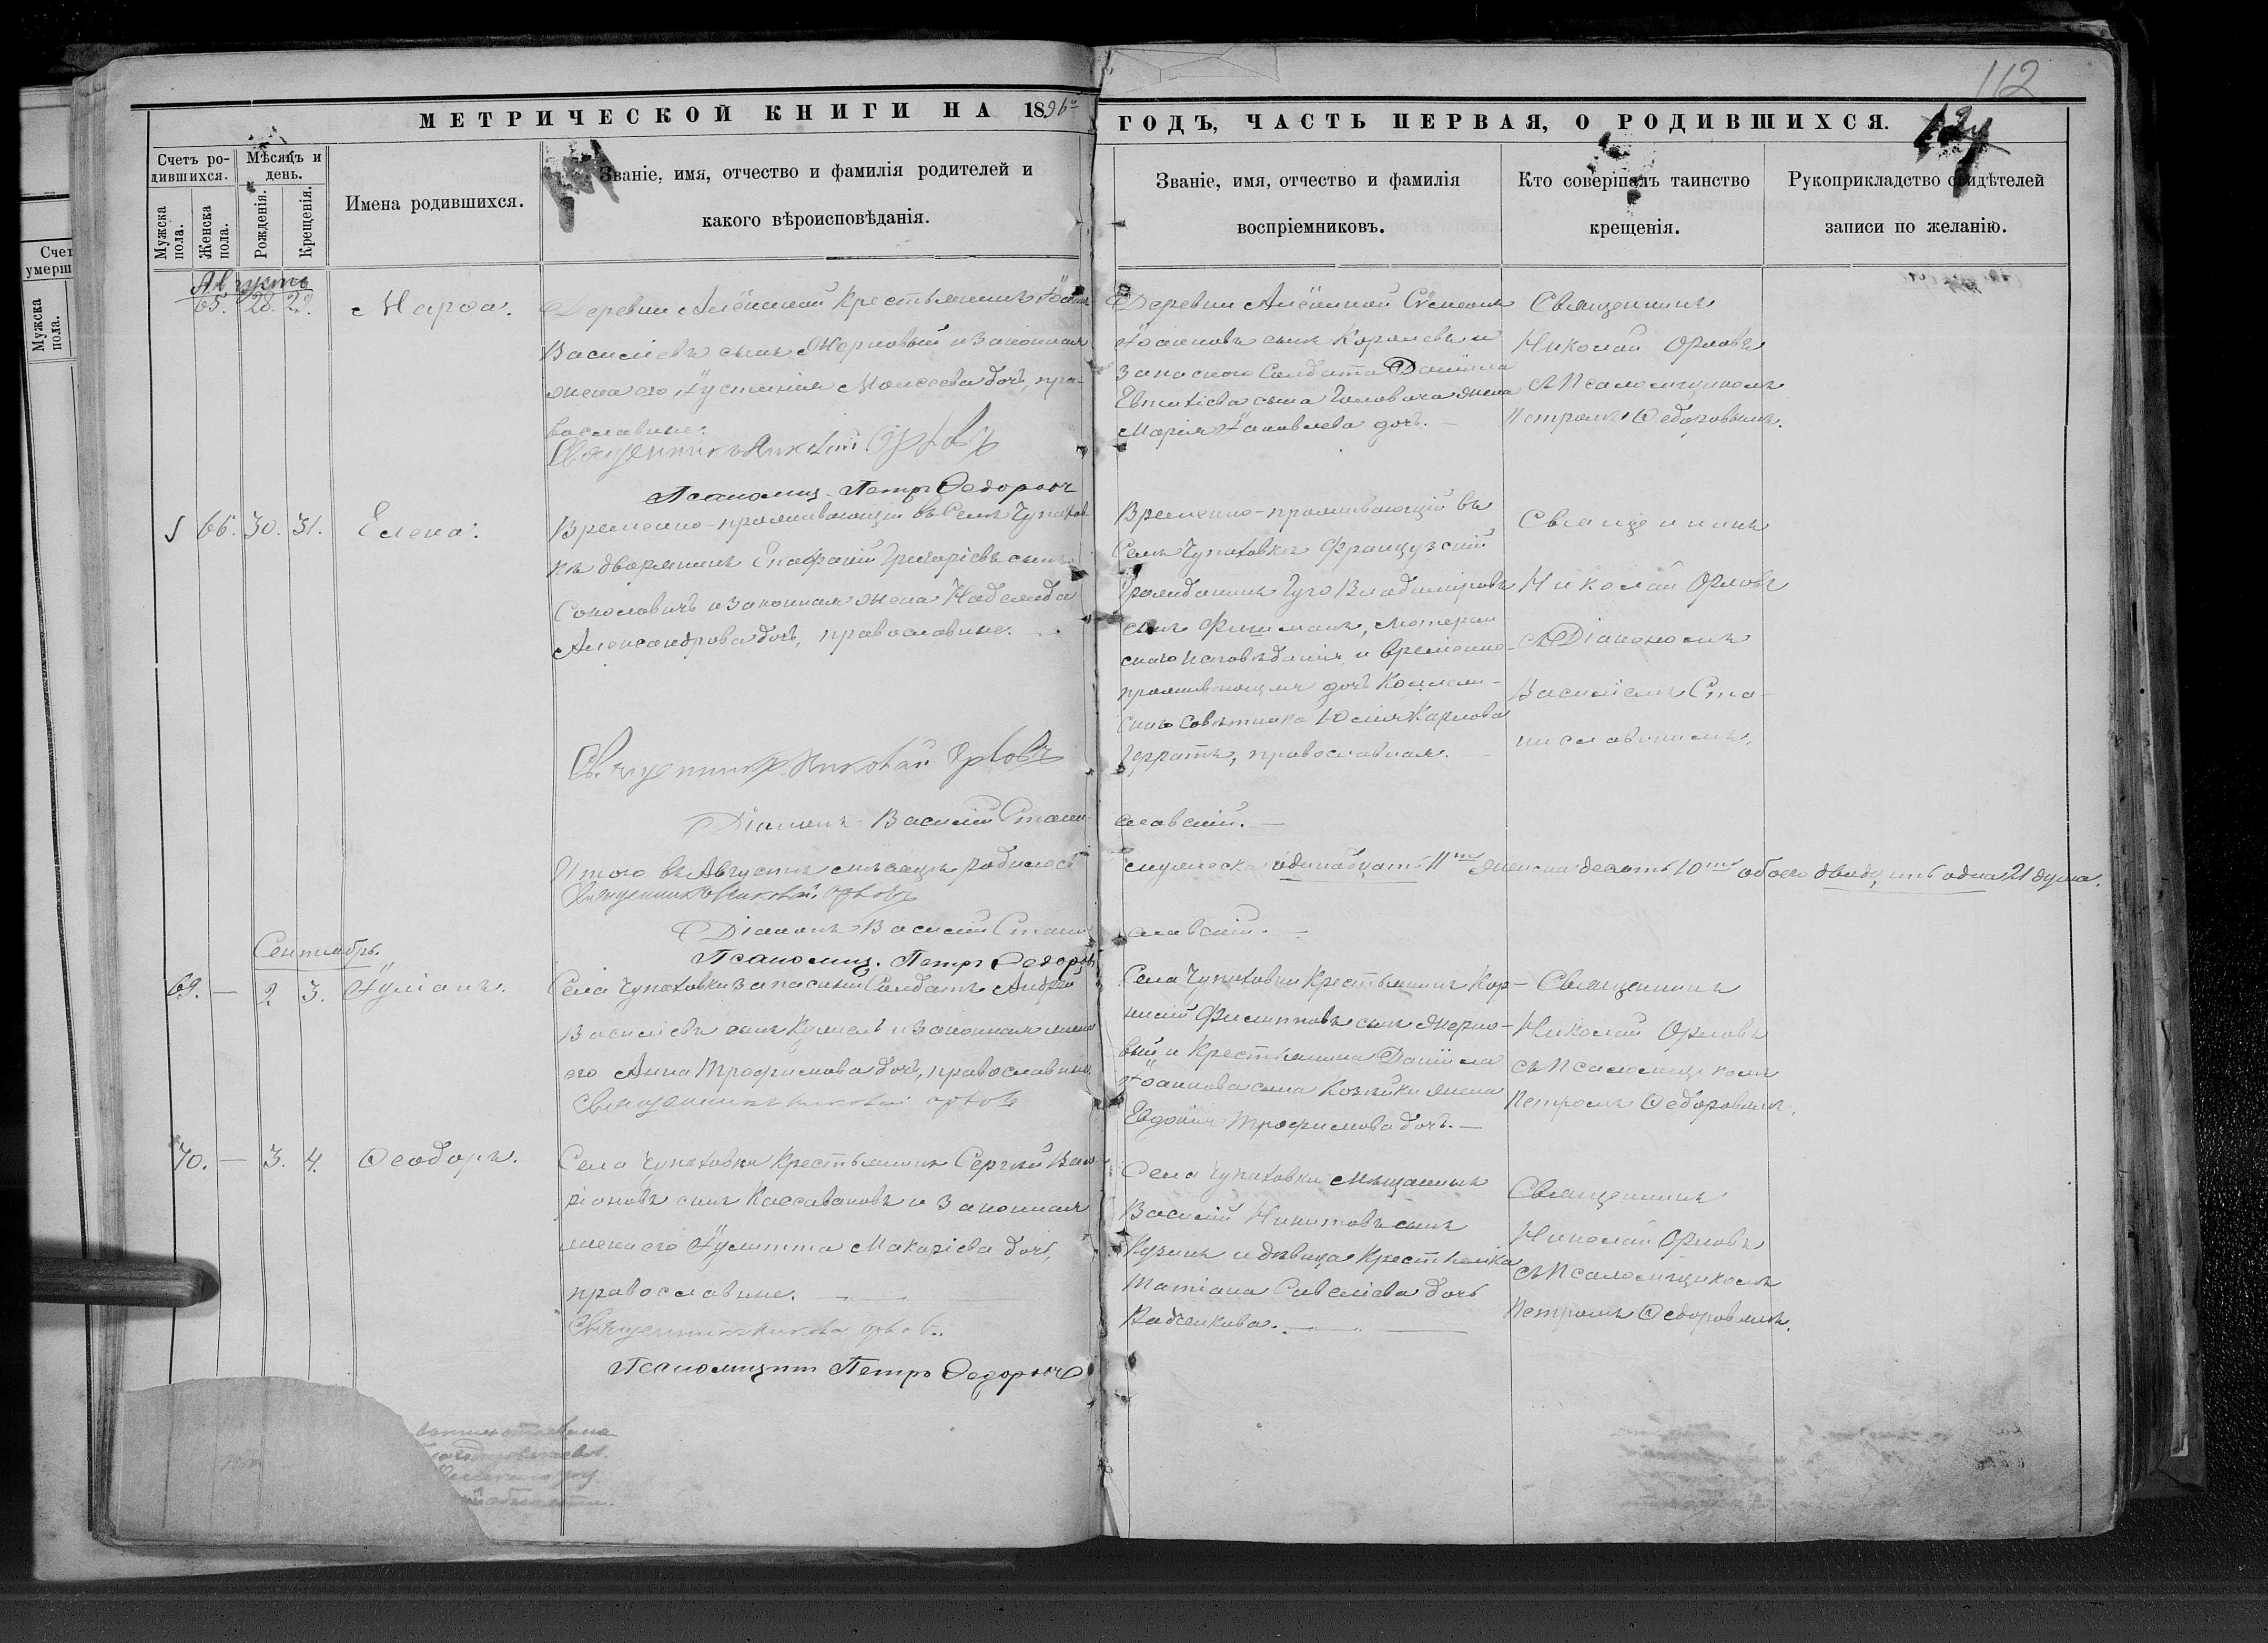 112
МЕТРИЧЕСКОЙ КНИГИ НА 1896й ГОДЪ, ЧАСТЬ ПЕРВАЯ, О РОДИВШИХСЯ.
Счетъ ро-
дившихся.
Мѣсяцъ и
день.
Мужска
пола.
Женска
пола.
Рожденія.
Крещенія.
Имена родившихся.
Званіе, имя, отчество и фамилія родителей и
какого вѣроисповѣданія.
Званіе, имя, отчество и фамилія
воспріемниковъ.
Кто совершалъ таинство
крещенія.
Рукоприкладство свидѣтелей
записи по желанію.
Счет
умерш
Мужска
пола.
Августъ
65. 28. 29.
Марѳа.
Деревни Алёшиной Крестьянинъ Іоаннъ
Василіевъ сынъ Жерновый и законная
жена его Іустинія Моисеева дочь, пра-
вославные.
Священникъ Николай Орловъ
Псаломщ. Петръ Ѳедоровъ
Деревни Алёшиной Сѵмеонъ
Іоанновъ сынъ Королевъ и
запаснаго Солдата Даніила
Евтихіева сына Головача жена
Марія Іаковлева дочь.
Священникъ
Николай Орловъ
съ Псаломщикомъ
Петромъ Ѳедоровымъ.
66. 30. 31.
Елена.
Временно-проживающій въ Селѣ Чупахов-
кѣ дворянинъ Григоріевъ сынъ
Соколовичъ и законная жена Надежда
Александрова дочь, православные.
Священникъ Николай Орловъ
Діаконъ Василій Стани-
славскій.
Временно-проживающій въ
Селѣ Чупаховкѣ Французскій
Гражданинъ Гуго Владиміровъ
сынъ Фишманъ, Лютеран
скаго исповѣданія, и временно-
проживающая дочь Коллеж-
скаго совѣтника Юлія Карлова
Герратъ, православная.
Священникъ
Николай Орловъ
съ Діакономъ
Василіемъ Ста-
ниславскимъ.
Итого въ Августѣ мѣсяцѣ родилось мужеска одинадцать 11ть женска десять 10ть обоего двадцать одна 21 душа.
Священникъ Николай Орловъ
Діаконъ Василій Стани-
славскій.
Псаломщ. Петръ Ѳедоровъ
Сентябрь.
69. — 2 3.
Іуліанъ.
Села Чупаховки запасный Солдатъ Андрей
Василіевъ сынъ и законная жена
его Анна Трофимова дочь, православные.
Священникъ Николай Орловъ
Села Чупаховки Крестьянинъ Кор-
нилій Филипповъ сынъ Жерно-
вый и Крестьянина Даніила
Іоаннова сына Козѣйки жена
Евдокія Трофимова дочь.
Священникъ
Николай Орловъ
съ Псаломщикомъ
Петромъ Ѳедоровымъ.
70. — 3. 4.
Ѳеодоръ.
Села Чупаховки Крестьянинъ Сергѣй
ріоновъ сынъ и законная
жена его Іулитта Макаріева дочь,
православные.
Священникъ Николай Орловъ.
Псаломщикъ Петръ Ѳедоровъ
Села Чупаховки Мѣщанинъ
Василій Никитовъ сынъ
Кузинъ и дѣвица Крестьянка
Татіана Савеліева дочь
Священникъ
Николай Орловъ
съ Псаломщикомъ
Петромъ Ѳедоровымъ.